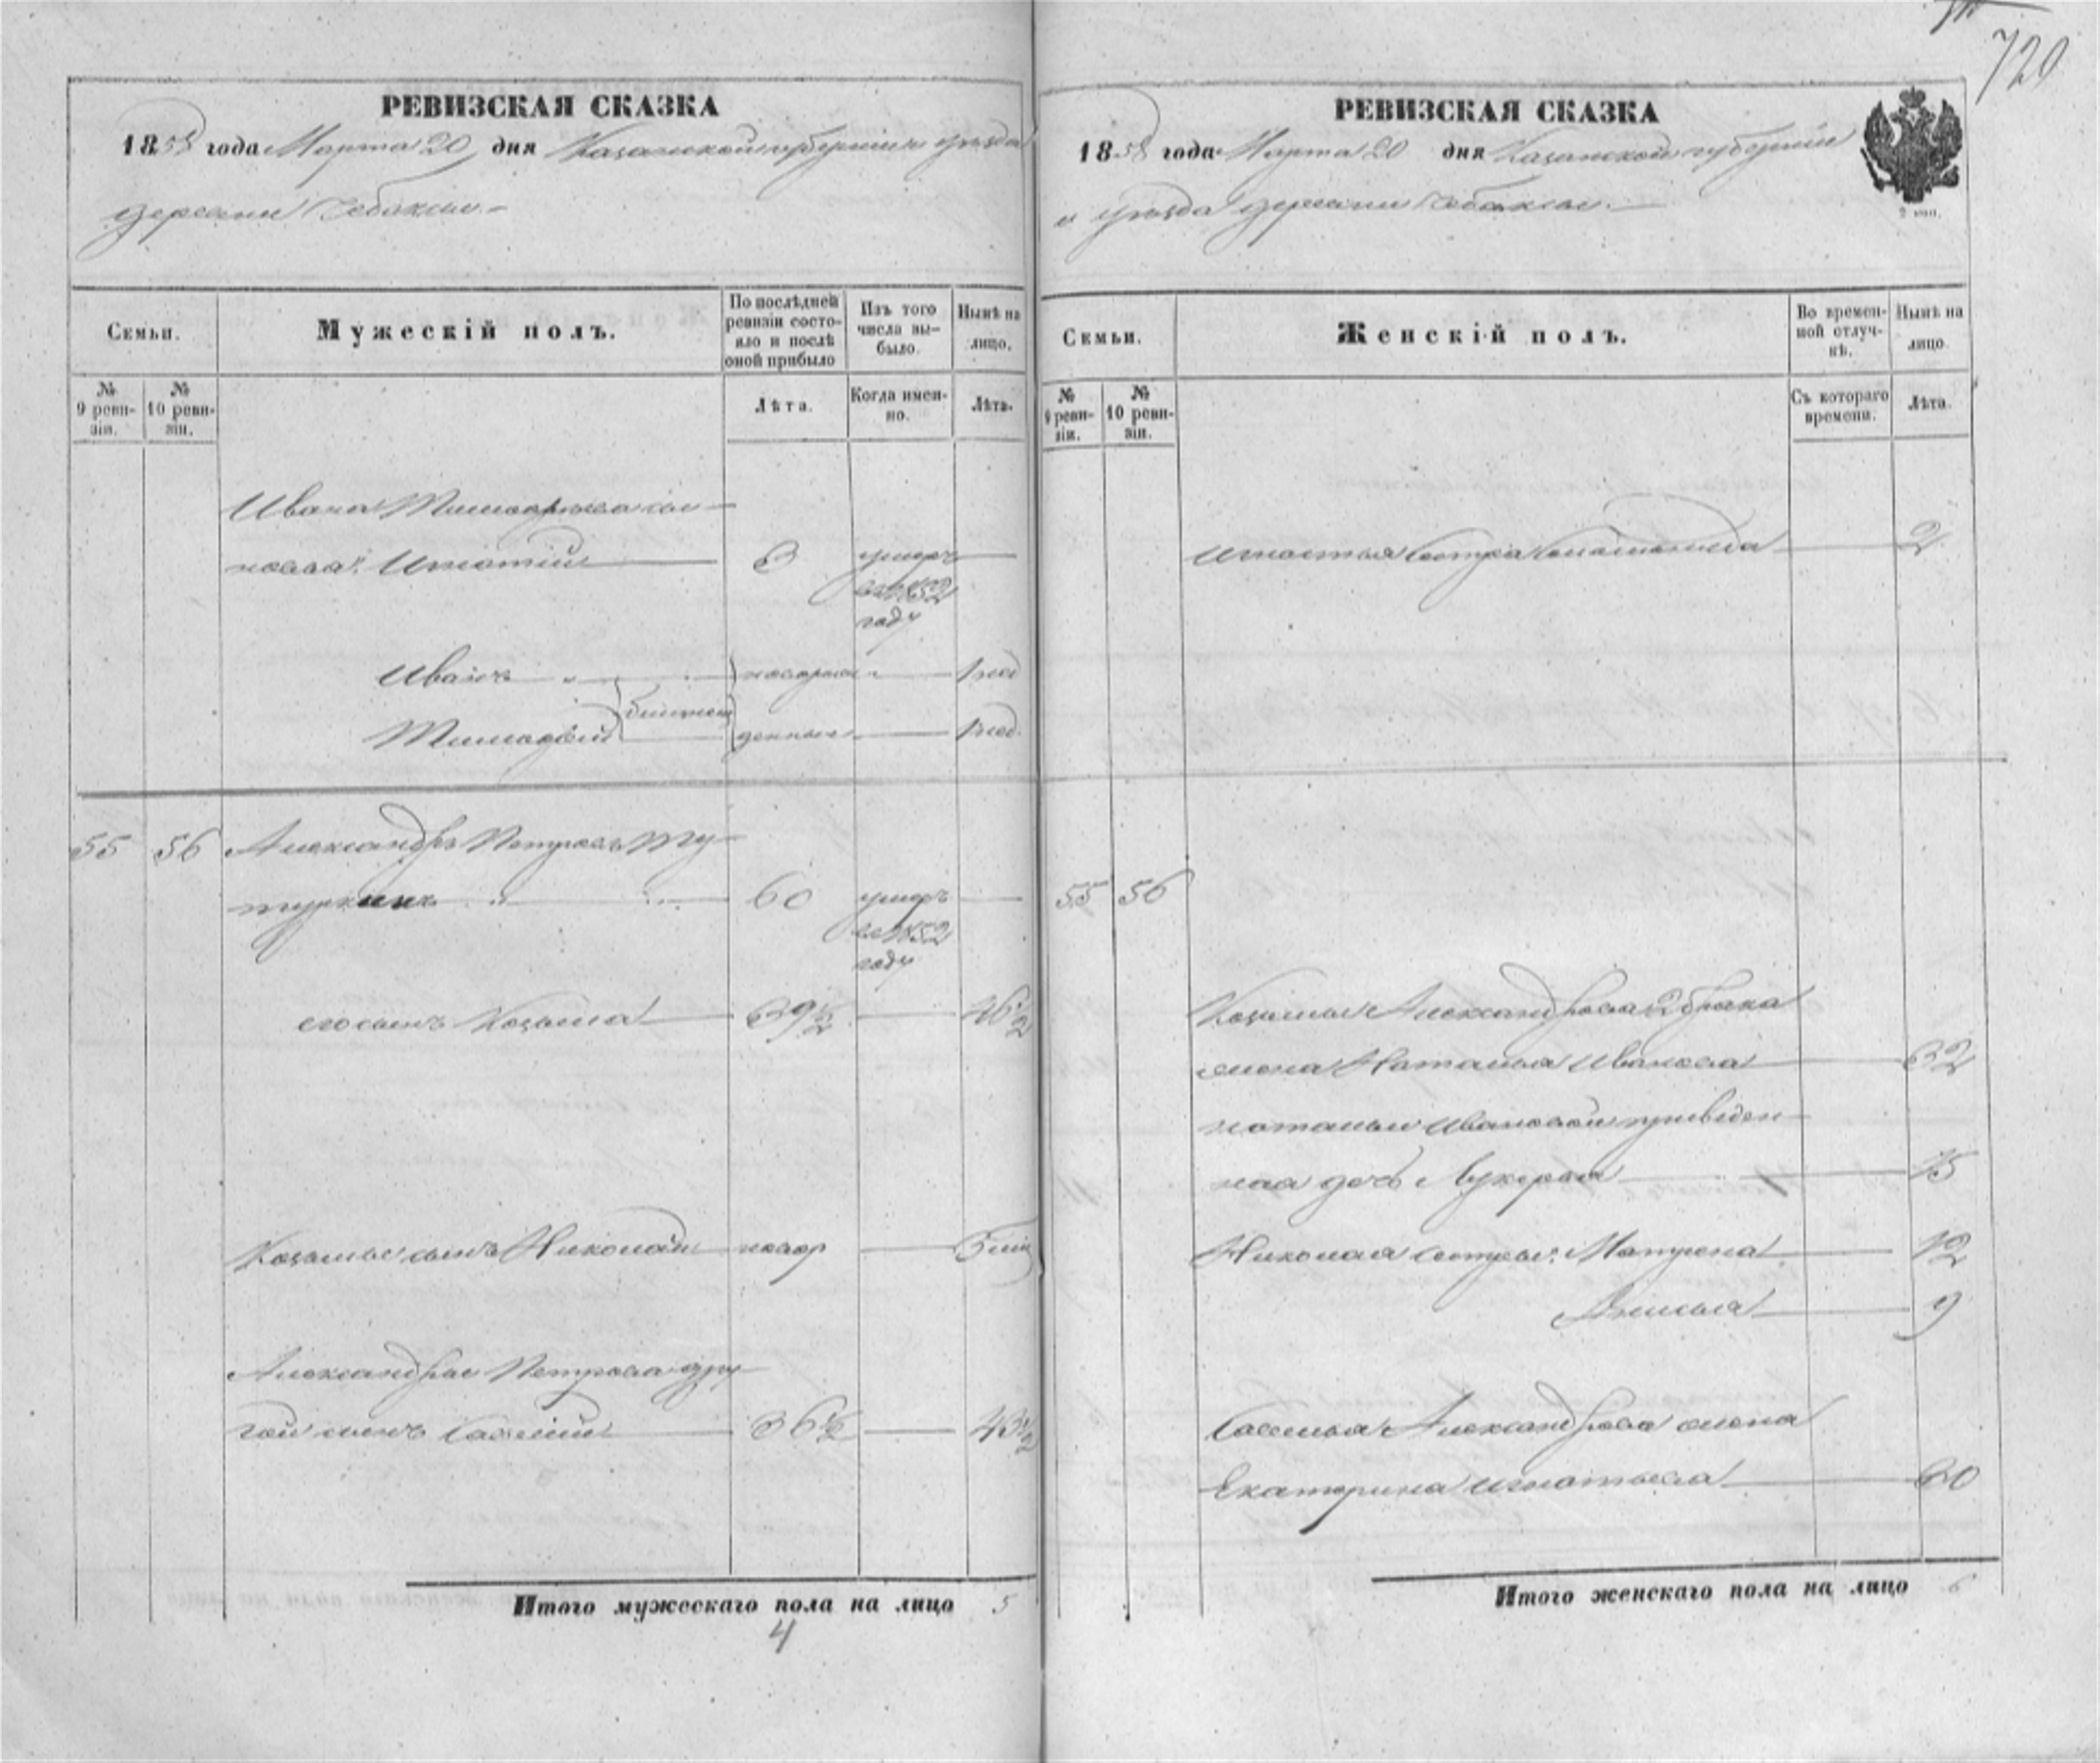 720
РЕВИЗСКАЯ СКАЗКА
1858 года Марта 20 дня Казанской губернии и уезда
деревни Чебаксы
Семьи.
Мужескій полъ.
По послѣдней ревизіи состояло и послѣ оной прибыло
Изъ того числа вы-
было.
Нынѣ на
лицо.
№
9 реви-
зіи.
№
10 реви-
зіи.
Лѣта.
Когда имен-
но.
Лѣта.
Ивана Тимофеева сы-
новья: Игнатій 3 умеръ
въ 1852
году
Иванъ новорож 1 нед
Тимофей близнецы денные 1 нед.
55 56 Александръ Петровъ Ту-
туркинъ 60 умеръ
въ 1852
году
его сынъ Козьма 39½ 46½
Козьмы сынъ Николай новор 5 мц
Александра Петрова дру-
гой сынъ Савелій 36½ 43½
Итого мужескаго пола на лицо 5
4
РЕВИЗСКАЯ СКАЗКА
1858 года Марта 20 дня Казанской губерніи
и уезда деревни Чебаксы.
2 коп.
Семьи.
Женскій полъ.
Во времен-
ной отлуч-
кѣ.
Нынѣ на
лицо
№
9 реви-
зіи.
№
10 реви-
зіи.
Съ котораго
времени.
Лѣта.
Игнатья сестра 2
55 56
Козьмы Александрова 2 брака
жена Наталья Иванова 32
Натальи Ивановой приведен-
ная дочь Лукерья 15
Николая сестры: Матрена 12
Анисья 9
Савелья Александрова жена
Екатерина Игнатьева
Итого женскаго пола на лицо 6